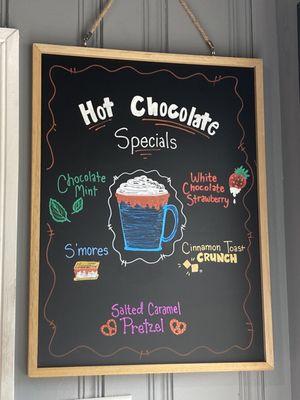 Hot Chocolate
Specials
Chocolate
Mint
White
Chocolate
Strawberry
S'mores
Cinnamon Toast
CRUNCH
Salted Caramel
Pretzel